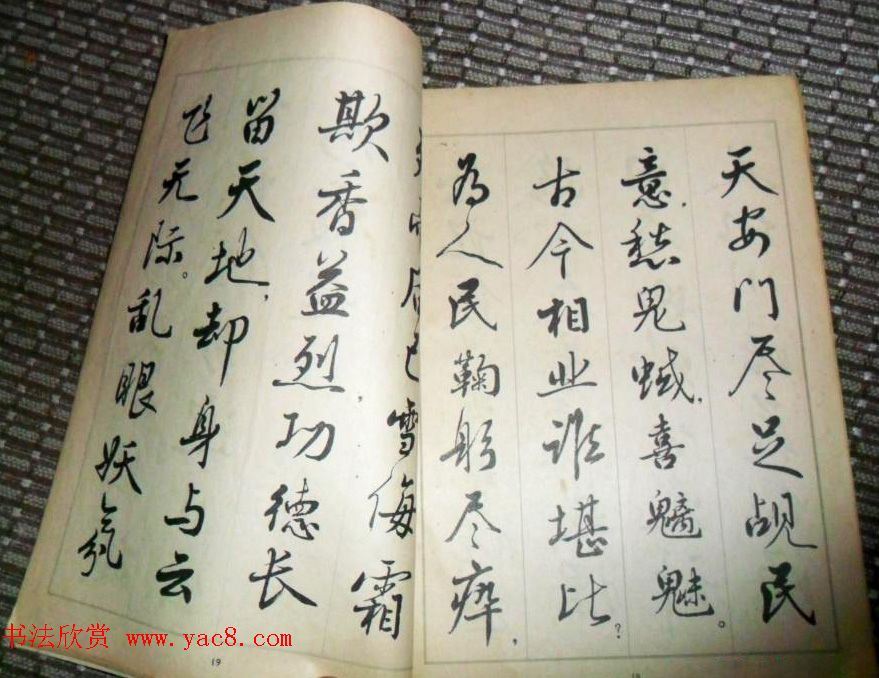 天安门尽足觇民
意，愁鬼蜮，喜魑魅。
古今相业谁堪比？
为人民鞠躬尽瘁，
雪侮霜
欺香益烈，功德长
留天地，却身与云
飞无际。乱眼妖氛
19
18
书法欣赏 www.yac8.com